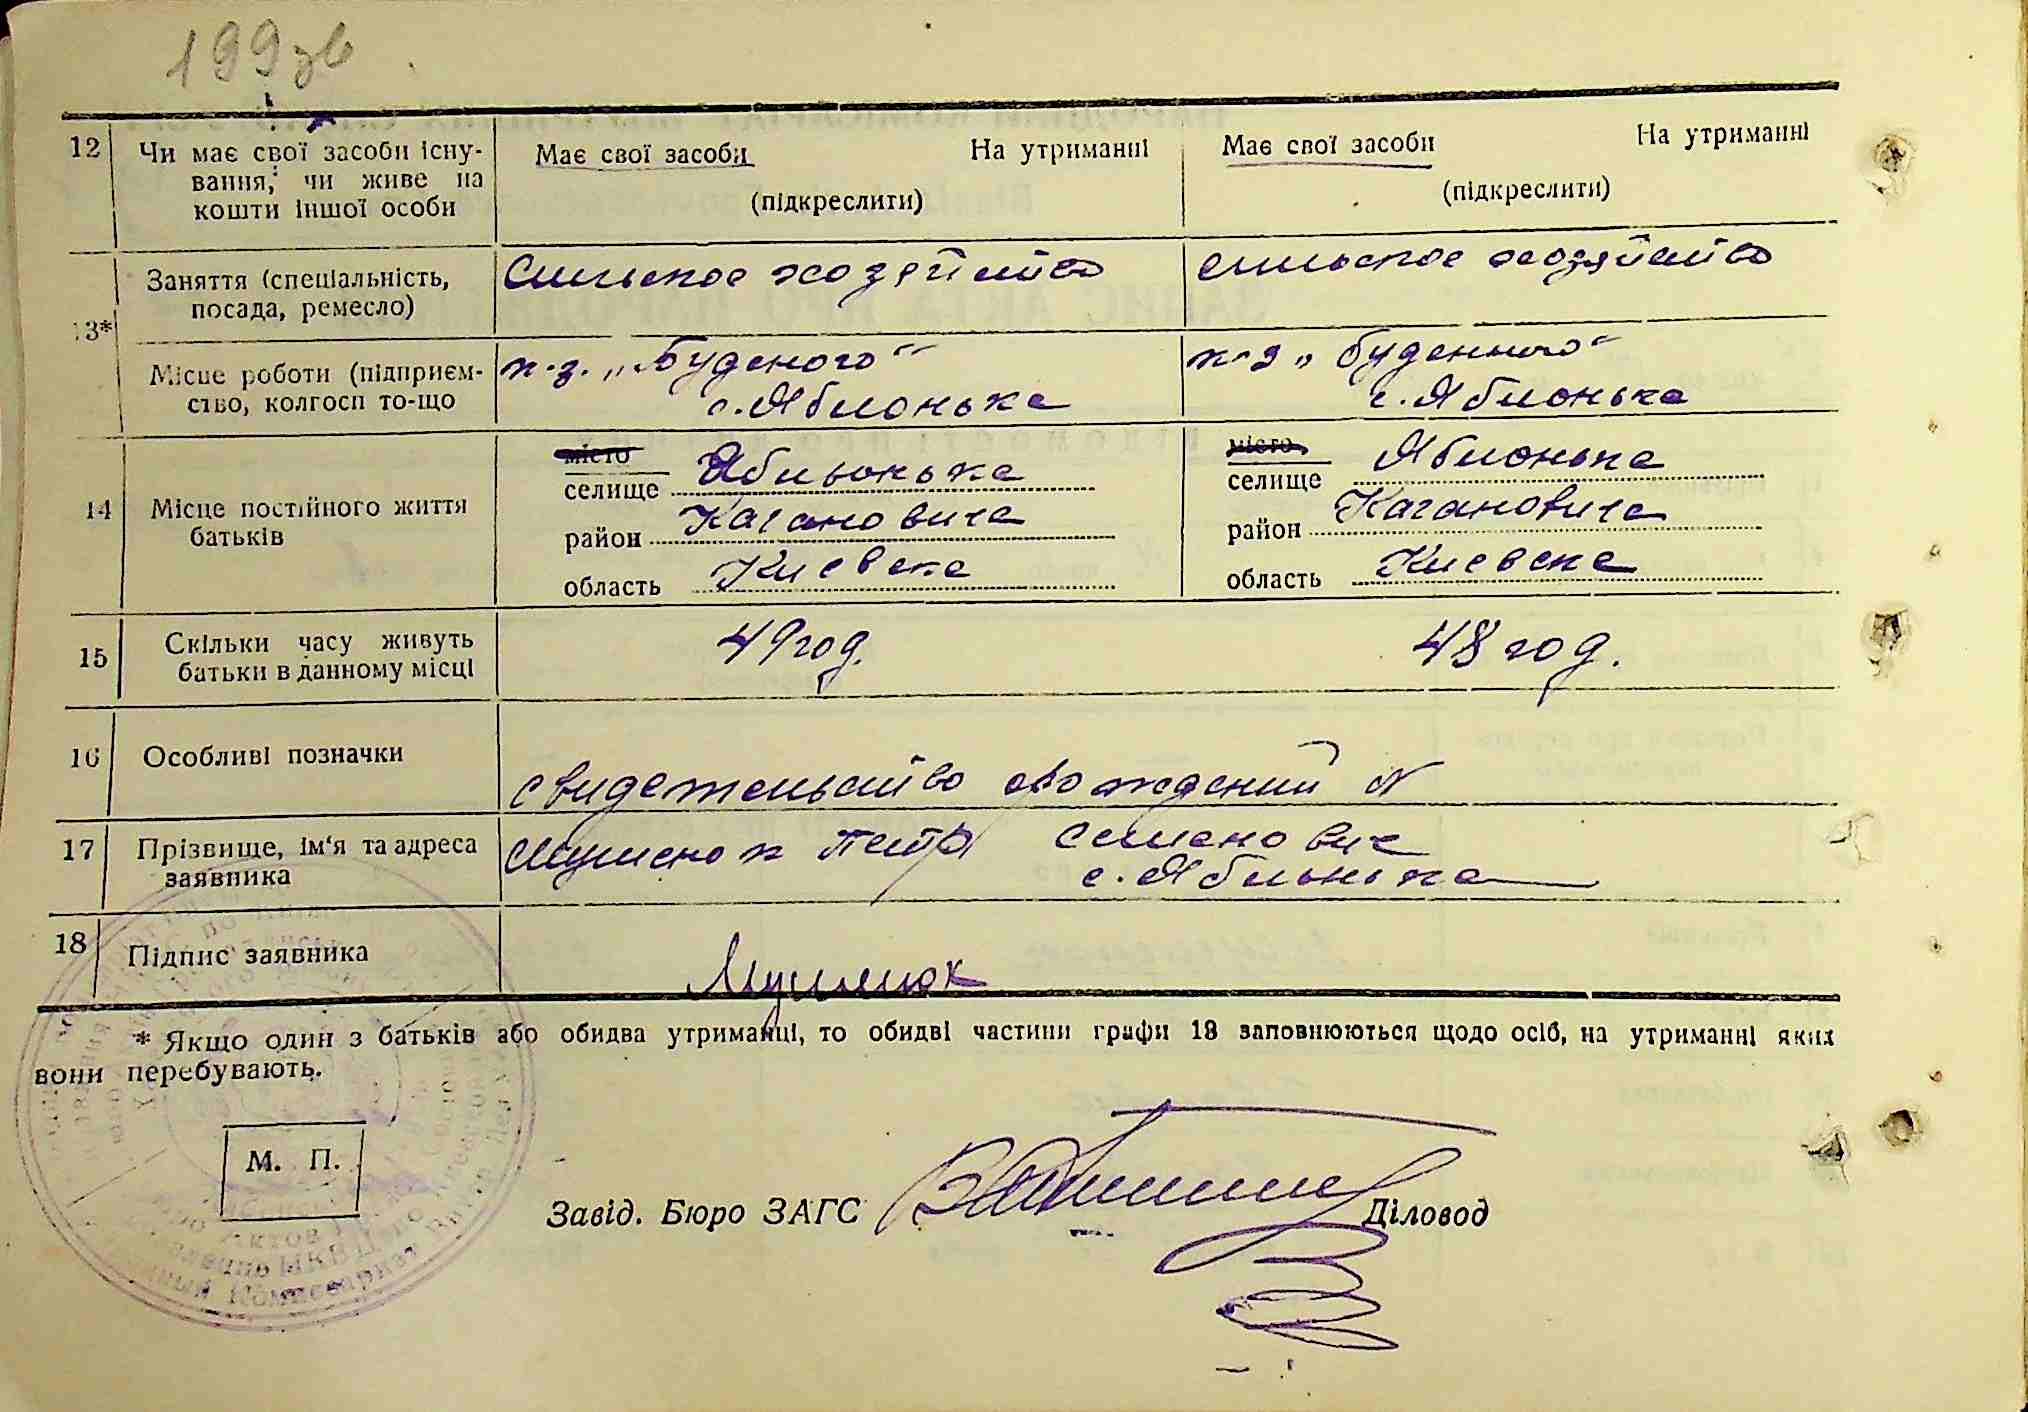 199 зв
12 Чи має свої засоби існу-
вання, чи живе на
кошти іншої особи
Має свої засоби На утриманні
(підкреслити)
Має свої засоби На утриманні
(підкреслити)
13*
Заняття (спеціальність,
посада, ремесло)
Сильское хозяйство
сильское хозяйство
Місце роботи (підприєм-
ство, колгосп то-що
к-з. „Буденого"
с. Яблонька
к-з „Буденного"
с. Яблонька
14 Місце постійного життя
батьків
місто
селище Ябльонька
район Кагановича
область Киевска
місто
селище Яблонька
район Кагановича
область Киевска
15 Скільки часу живуть
батьки в данному місці
49 год.
48 год.
16 Особливі позначки
свидетельство о рождении N
17 Прізвище, ім'я та адреса
заявника
Петр Семенович
с. Яблонька
18 Підпис заявника
* Якщо один з батьків або обидва утриманці, то обидві частини графи 13 заповнюються щодо осіб, на утриманні яких
вони перебувають.
М. П.
Завід. Бюро ЗАГС
Діловод